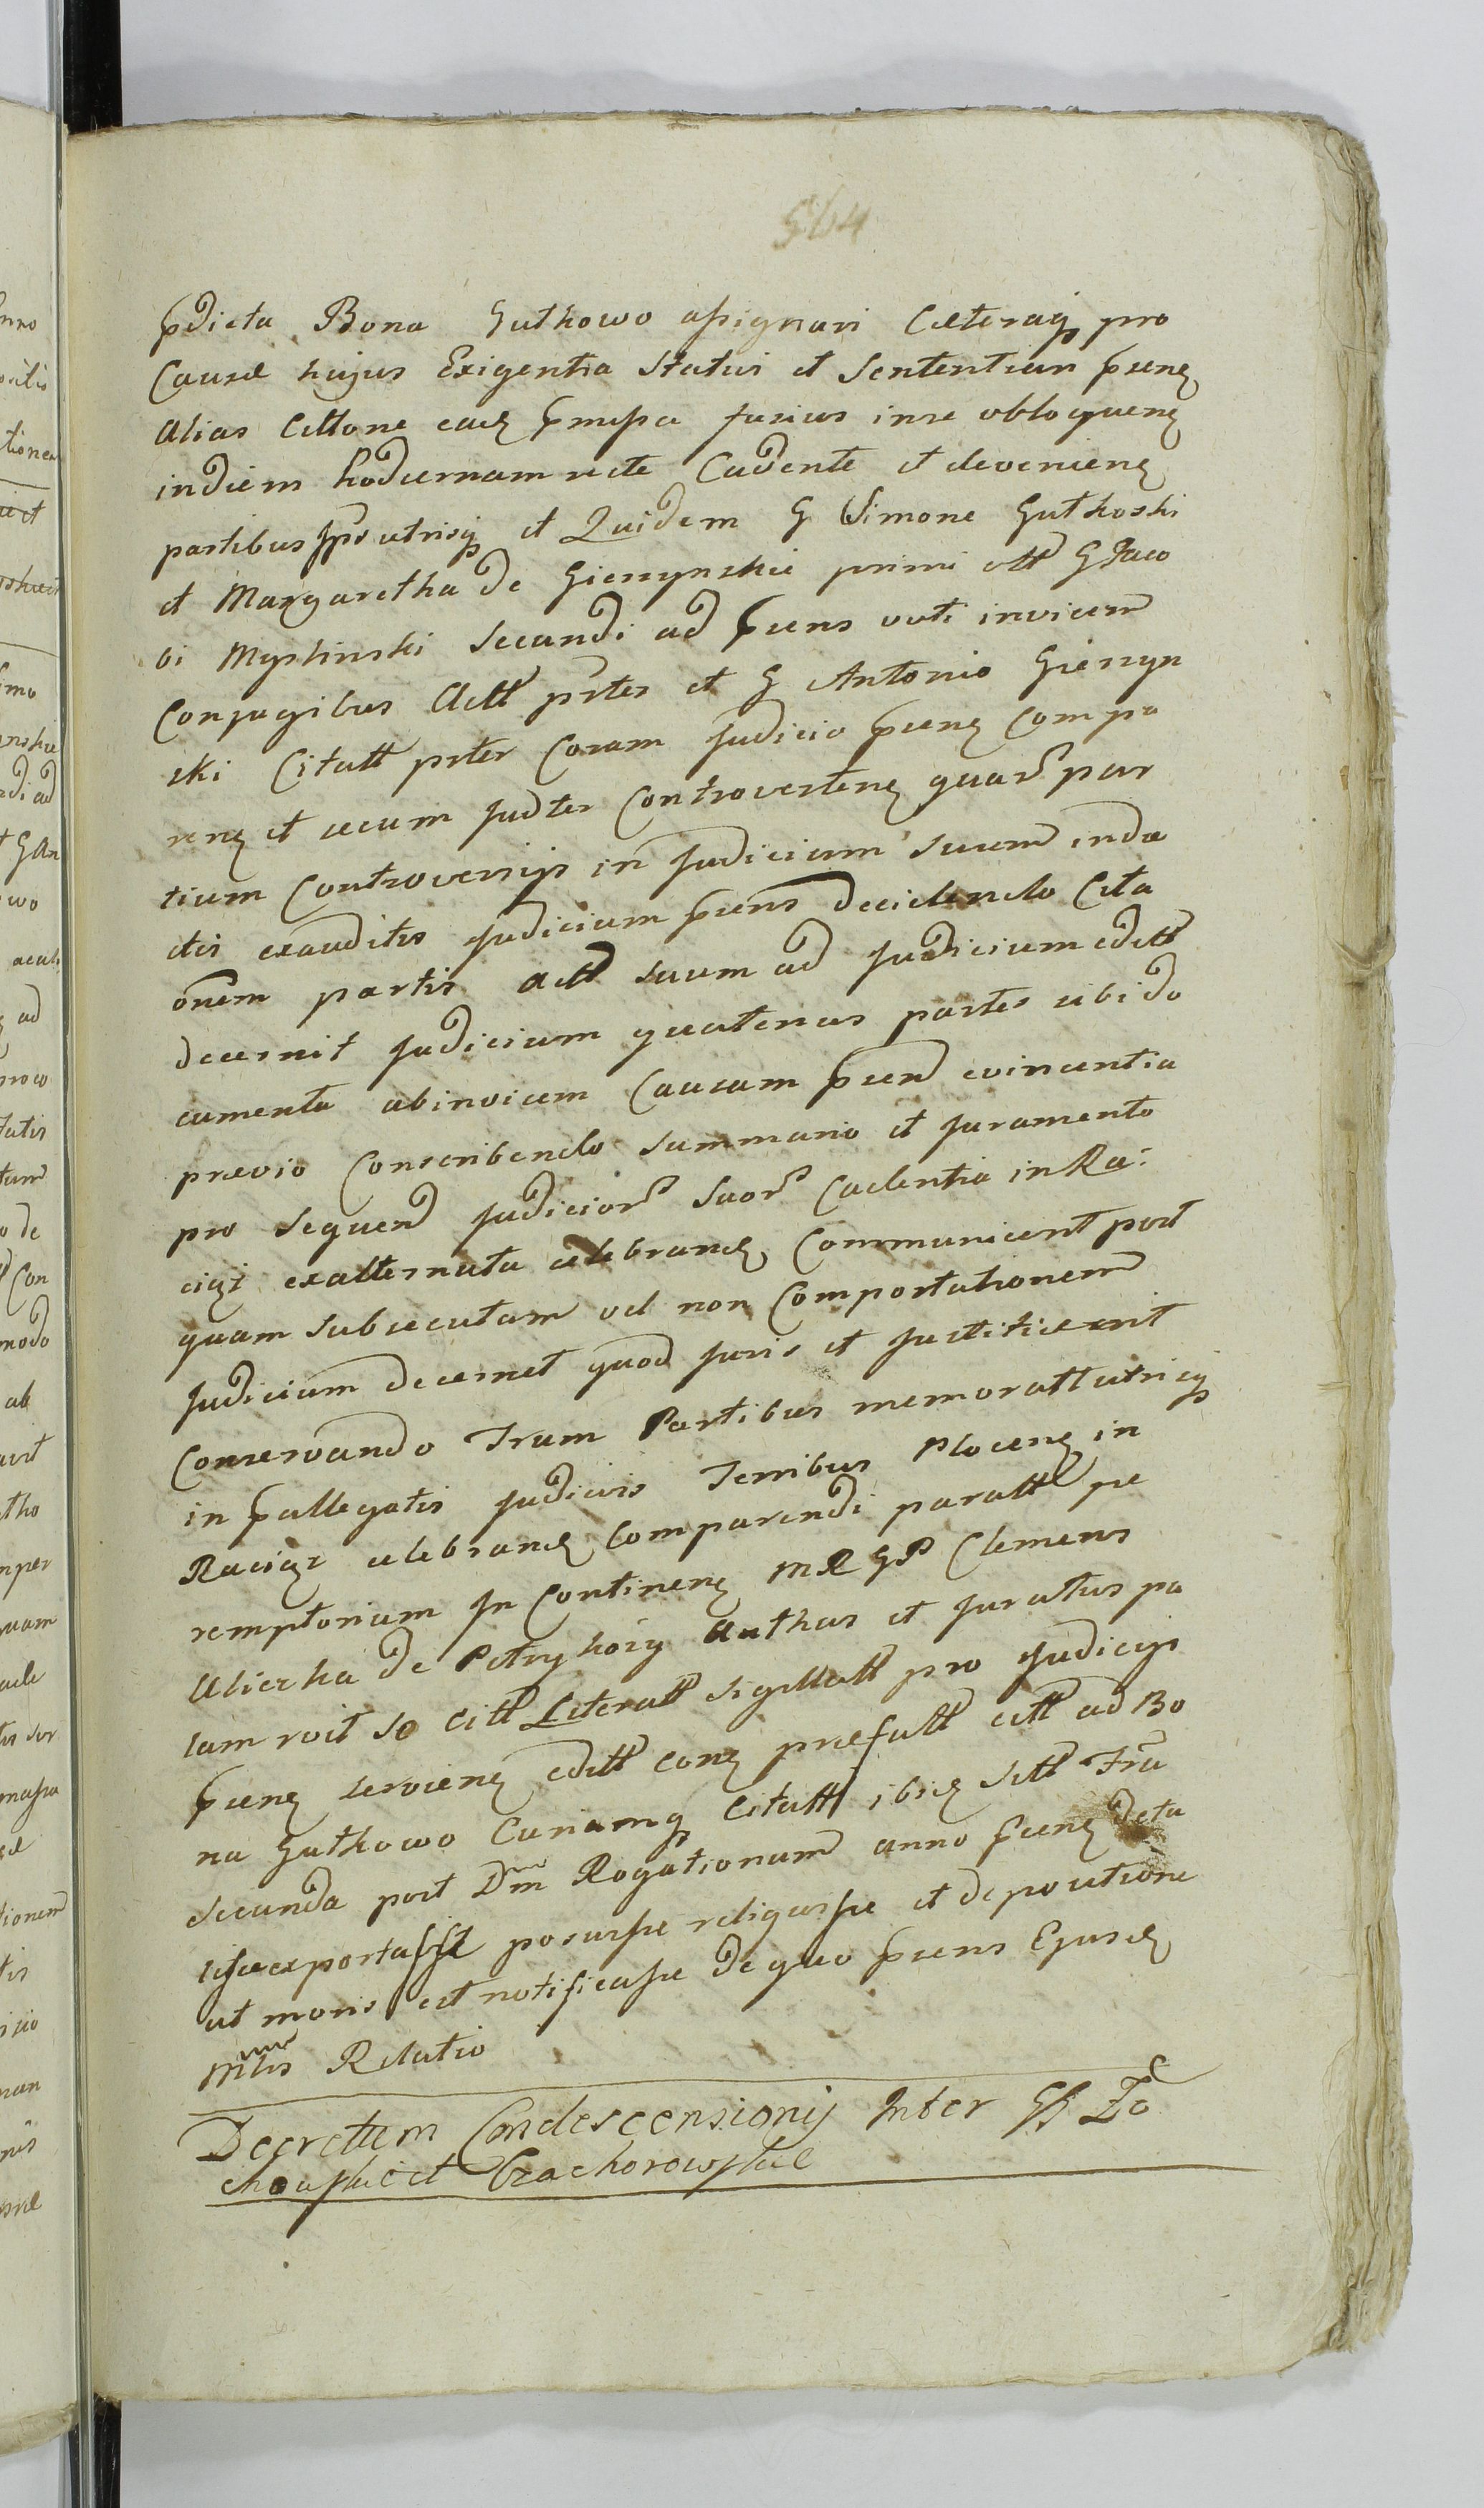 564
pdicta Bona Gutkowo assignari Cæteraq pro
Causæ hujus Exigentia Statui et Sententiam psenę
alias Cittone eadę pmissa fusius inse obloquenę
indiem hodiernam recte Cadente et devenienę
partibus ipsis utrisq et Quidem G Simone Gutkoski
et Margaretha de Gierzynskie primi ott G Jaco
bi Myslinski Secundi ad psens voti invicem
Conjugibus Actt prter et G Antonio Gierzyn
ski Citatt prter Coram Judicio psenę Compa
renę et secum Judter Controvertenę quar par
tium Controversijs in Judicium suum indu
ctis exauditis Judicium psens decidendo Cita
onem partis Actt suum ad Judicium editt
decernit Judicium quatenus partes sibi do
cumenta abinvicem Causam psen evincentia
prævio Conscribendo Summario et Juramento
pro sequen Judicior suor Cadentia in Ra:
ciąz exalternata celebrandę Communicent post
quam subsecutam vel non Comportationem
Judicium decernet quod Juris et Justitiæ erit
Conservando Trum Partibus memoratt utrisq
in pallegatis Judiciis Terribus Plocenę in
Raciąz celebrandę Comparendi paratt pe
remptorium In Continenę MRGP Clemens
Alierha de Petrykozy Authus et Juratus pa
lam roit se citt Literatt Sigillatt pro Judicijs
psenę servienę editt conę præfatt citt ad Bo
na Gutkowo Curiamq Citatt ibię sitt Fria
Secunda post Dm Rogationum anno psenę deta
lisse exportasse posuisse reliquisse et depositione
ut moris est notificasse de quo psens Ejusdę
Mlis Relatio
Decrettem Condescensionij Inter GG Zo
chowskie et Czachorowskie